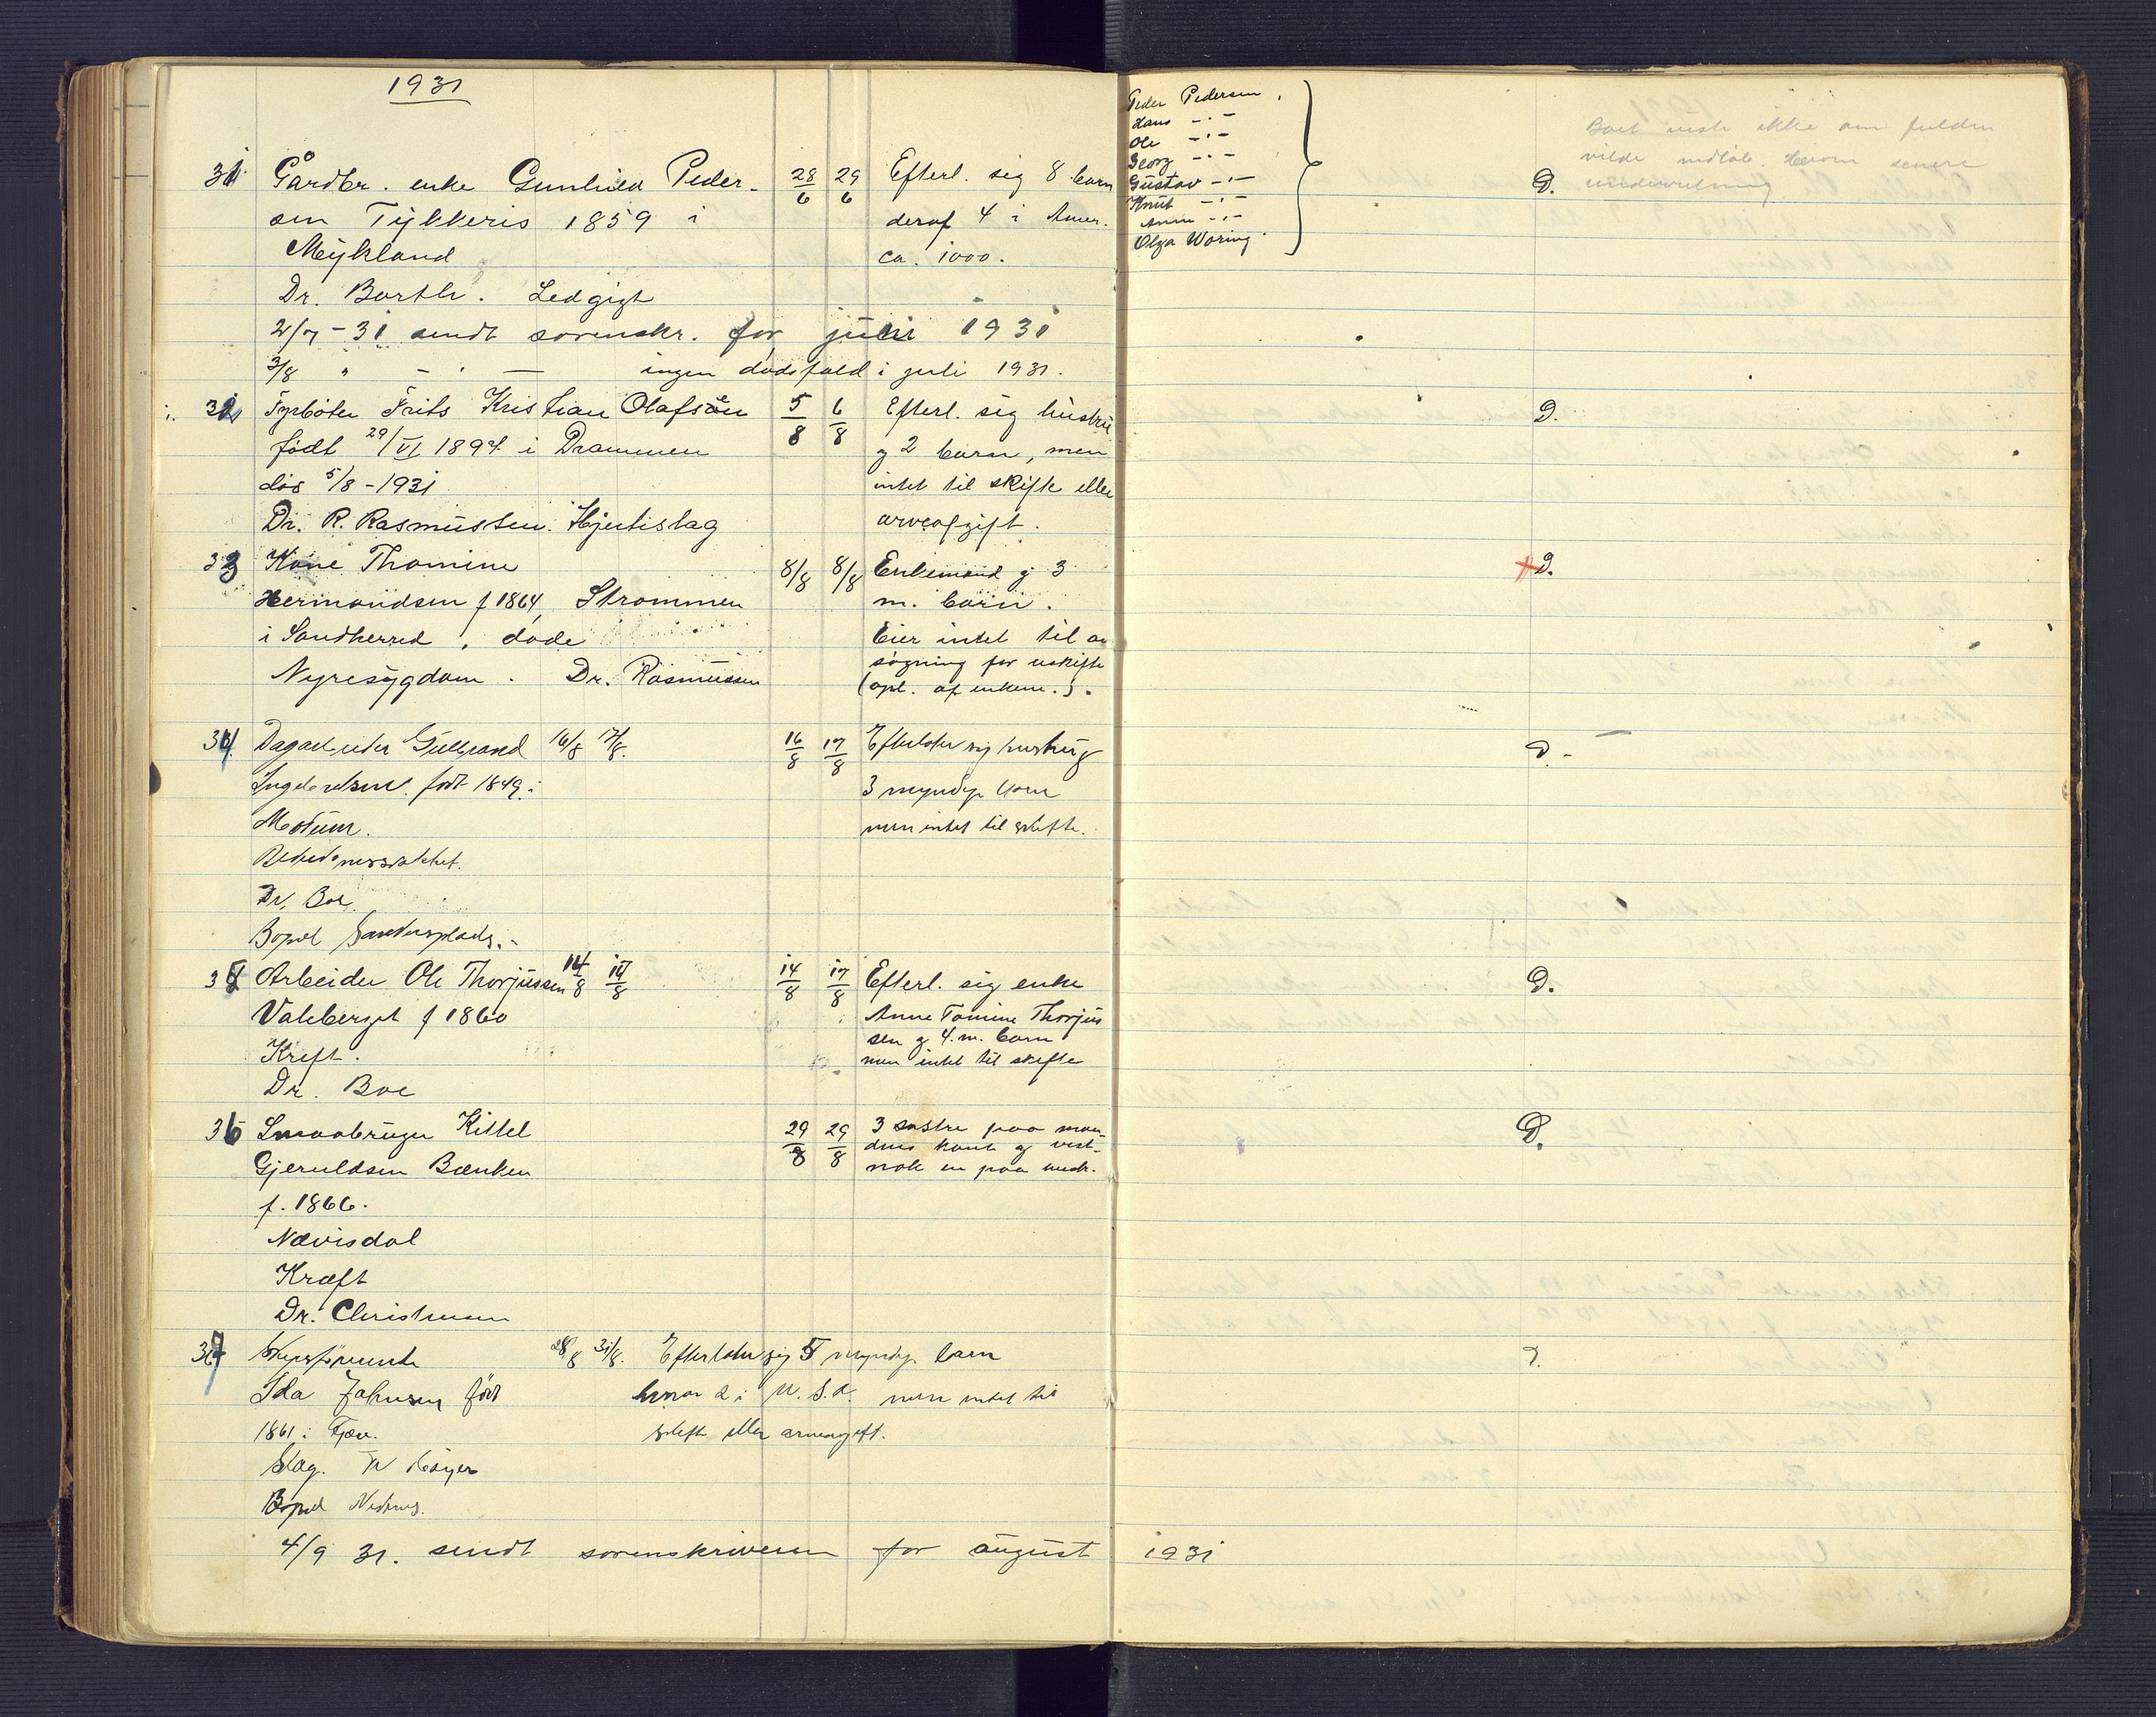 1931
31 Gårdbr. enke Gunhild Peder- 28/6 29/6 Efterl. sig 8 barn
sen Tykkeris 1859 i deraf 4 i Amer.
Mykland ca. 1000.
Dr. Barth. Ledgigt
2/7-31 sendt sorenskr. for juni 1931
3/8 " - " - ingen dødsfald i juli 1931.
Peder Pedersen.
Hans -"-
Ole -"-
Georg -"-
Gustav -"-
Knut -"-
Anna -"-
Olga Waring.
D.
Boet viste ikke om
vilde indløb. Herom senere
underretning
32 Fyrbøter Frits Kristian Olafsen 5/8 6/8 Efterl. sig hustru
født 29/VI 1894 i Drammen og 2 barn, men
dør 5/8-1931 intet til skifte eller
Dr. R. Rasmussen. Hjerteslag arveafgift.
D.
33 Kone Thomine 8/8 8/8 Enkemand og 3
Hermandsen f 1864, Strømmen m. barn.
i Sandherred, døde Eier intet til an
Nyresygdom. Dr. Rasmussen søgning for uskifte
(opl. af enkem.).
D.
34. Dagarbeider Gulbrand 16/8 17/8. 16/8 17/8 Efterlater sig hustru og
Ingebretsen født 1849 i 3 myndige barn
Modum. men intet til skifte.
Alderdomssvakhet.
Dr. Boe.
Bopæl Sandersplads.-
D.-
35 Arbeider Ole Thorjussen 14/8 17/8 14/8 17/8 Efterl. sig enke
Valeberget f 1860 Anne Tomine Thorjus
Kreft. sen og 4. m. barn
Dr. Boe men intet til skifte
D.
36 Smaabruger Kittel 29/8 29/8 3 søstre paa man-
Gjeruldsen Bænken dens kant og vist-
f. 1866. nok en paa
Nævisdal
Kræft
Dr. Christensen
D.
37 28/8 31/8. Efterlater sig 5 myndige barn
Ida Johnsen født hvorav 2 i U.S.A. men intet til
1861 i skifte eller arveavgift.
Slag. Dr
Bopæl Nedenes.
D.
4/9 31. sendt sorenskriveren for august 1931